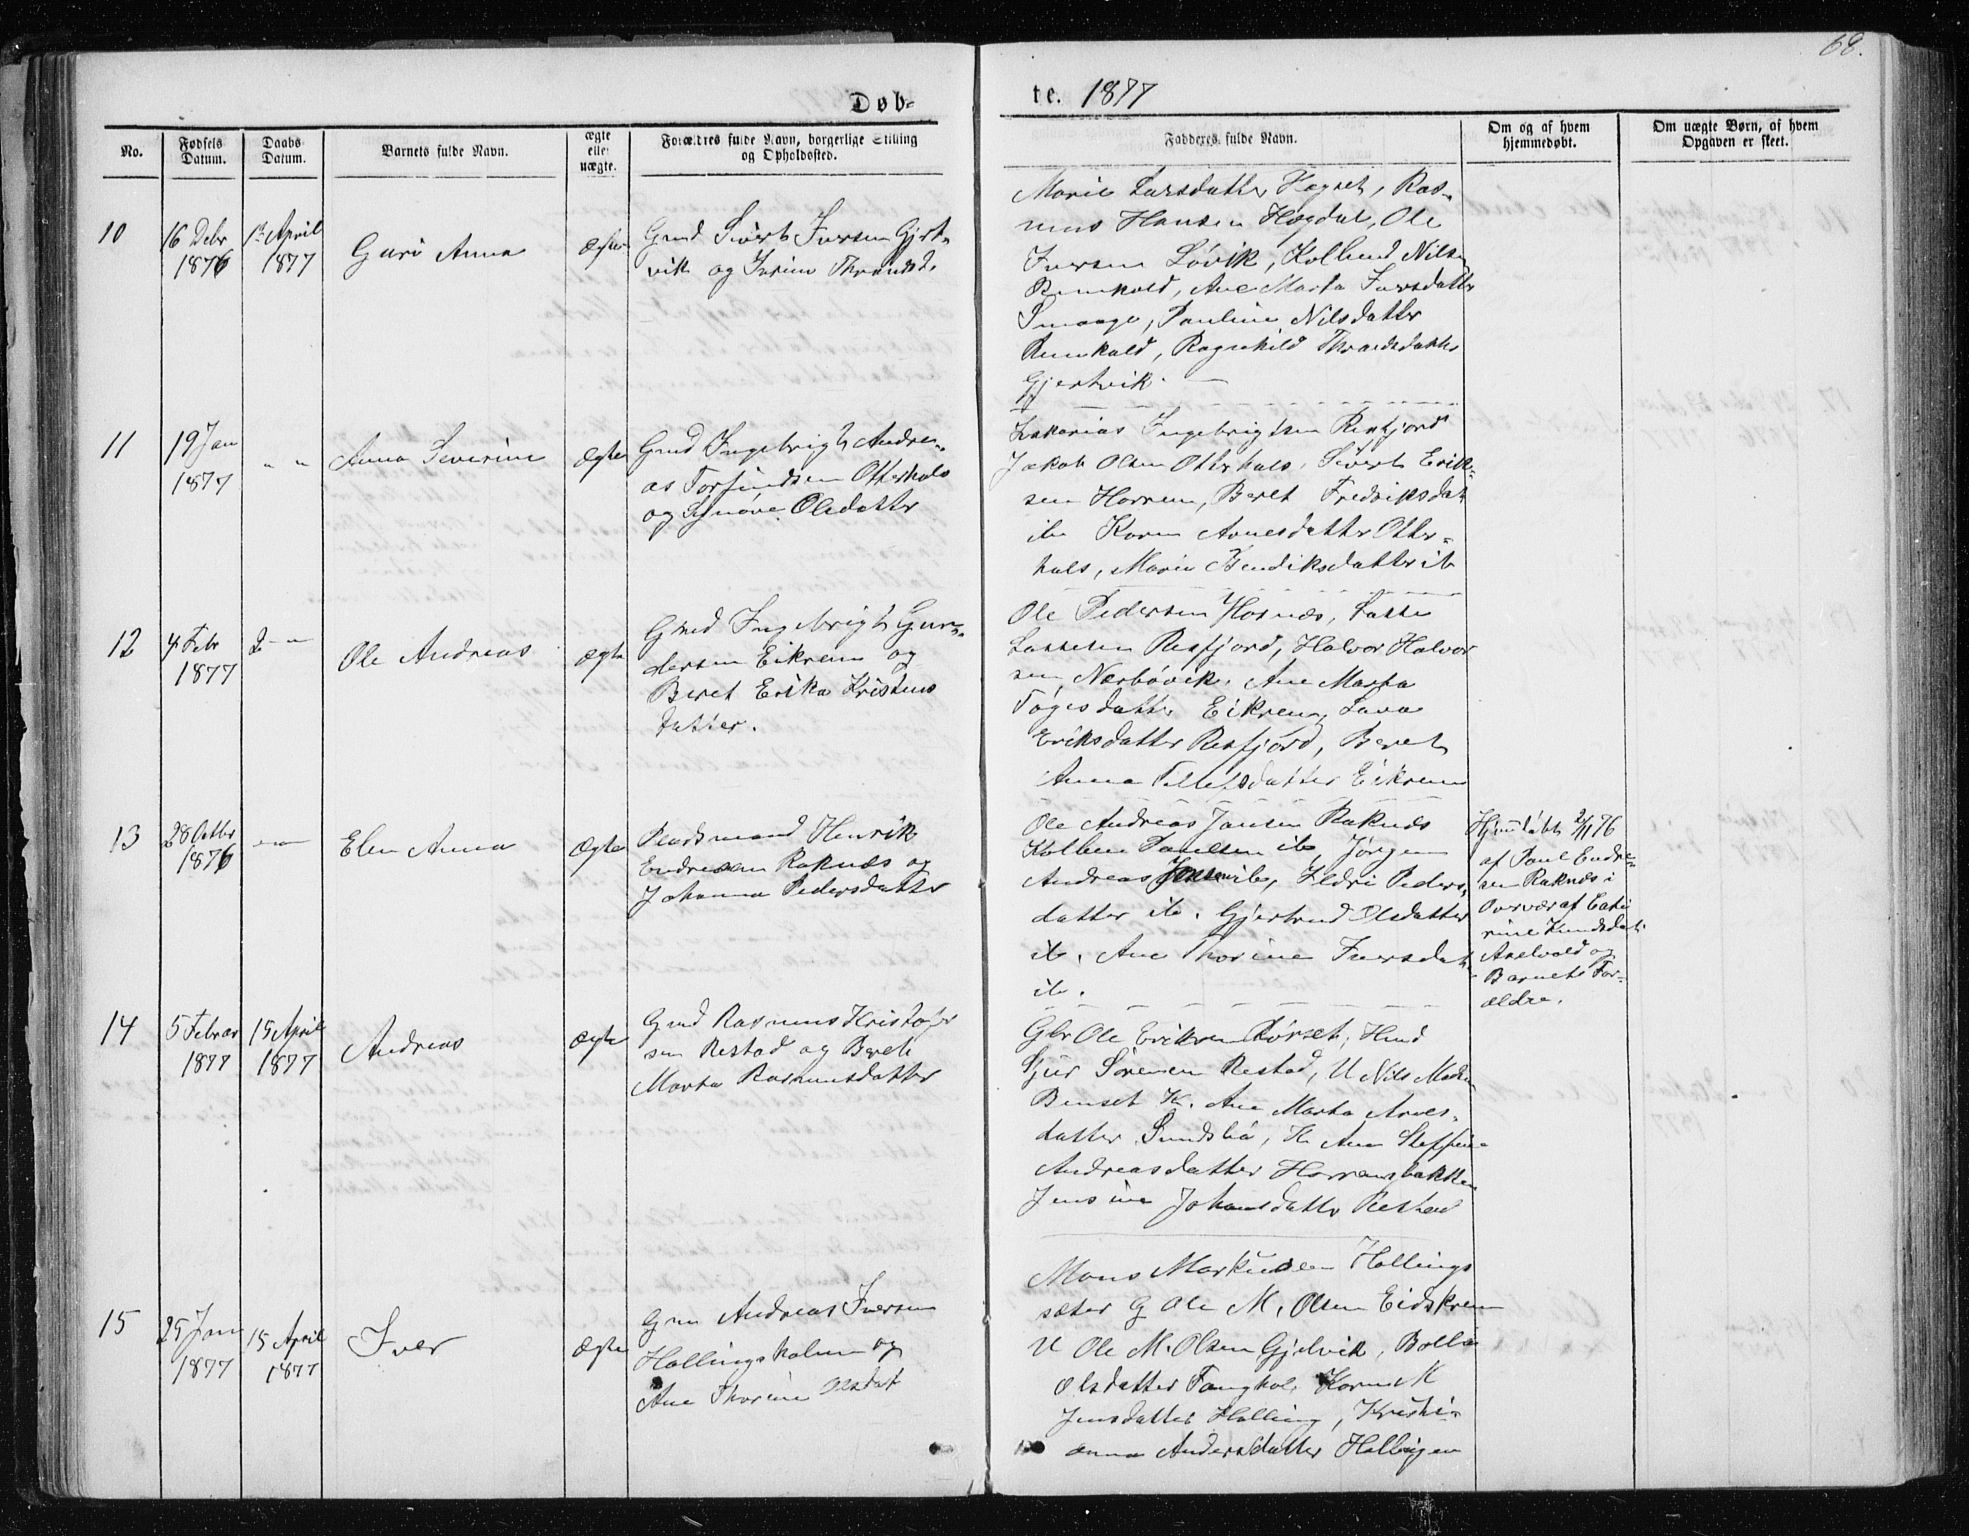 68.
Døb-
te. 1877
No.
Fødsels
Datum.
Daabs
Datum.
Barnets fulde Navn.
ægte
eller
uægte.
Forældres fulde Navn, borgerlige Stilling
og Opholdssted.
Fadderes fulde Navn.
Om og af hvem
hjemmedøbt.
Om uægte Børn, af hvem
Opgaven er skeet.
10
16 Debr
1876
1st April
1877
Guri Anna
Ægte
Gmd Sivert Iversen Gjert-
vik og Thrandsd.
Marie Larsdatter Hagset, Ras-
mus Hansen Hogdal, Ole
Iversen Løvik, Kolbend Nilsen
Ane Marta Iversdatter
Smaage, Pauline Nilsdatter
Ragnhild Thrandsdatter
Gjertvik.
11
19 Jan
1877
" "
Anna Severine
Ægte
Gmd Ingebrigt Andre-
as Torfindsen Otterhals
og Synøve Olsdatter
Zakarias Ingebrigtsen Resfjord
Jakob Olsen Otterhals, Sivert Erik-
sen Harrem, Beret Fredriksdat
ib Karen Arnesdatter Otter-
hals, Marie Bendiksdatter ib
12
4 Febr
1877
2 - "
Ole Andreas
ægte
Gmd Ingebrigt Gun-
dersen Eikrem og
Beret Erika Kristens
datter.
Ole Pedersen Hosnæs, Lasse
Lassesen Resfjord, Halvor Halvor
sen Nerbøvik, Ane Marta
datter Eikrem,
Eriksdatter Resfjord, Beret
Anna Tellefsdatter Eikrem
13
28 Octbr
1876
- " -
Elen Anna
Ægte
Pladsmand Henrik
Endresen Raknæs og
Johanna Pedersdatter
Ole Andreas Jansen Raknæs
Kolben Paulsen ib, Jørgen
Andreas Jensen ib, Ildri Peders-
datter ib. Gjertrud Olsdatter
ib. Ane Thorine Iversdat
ib.
Hjemdøbt 2/11 76
af Paul Endre-
sen Raknæs i
Overvær af Cath
rine Knudsdat
Axelvold og
Barnets For-
ældre.
14
5 Februar
1877
15 April
1877
Andreas
Ægte
Gmd Rasmus Kristofer
sen Restad og Beret
Marta Rasmusdatter
Gbr Ole Eriksen Rørset,
Sjur Sørensen Restad, U Nils
K. Ane Marta Arnes-
datter Sundsbø, K Ane Steffine
Andreasdatter Harremsbakken
Jensine Johansdatter Restad
15
25 Jan
1877
15 April
1877
Iver
Ægte
Gm Andreas Iversen
Hollingsholmen og
Ane Thorine Olsdat
Mons Markusen Hollings
sæter G Ole M. Olsen Eidskrem
U Ole M. Olsen Gjelvik,
Olsdatter Karen M
Jensdatter Holling, Kristi-
anna Andersdatter Hollingen